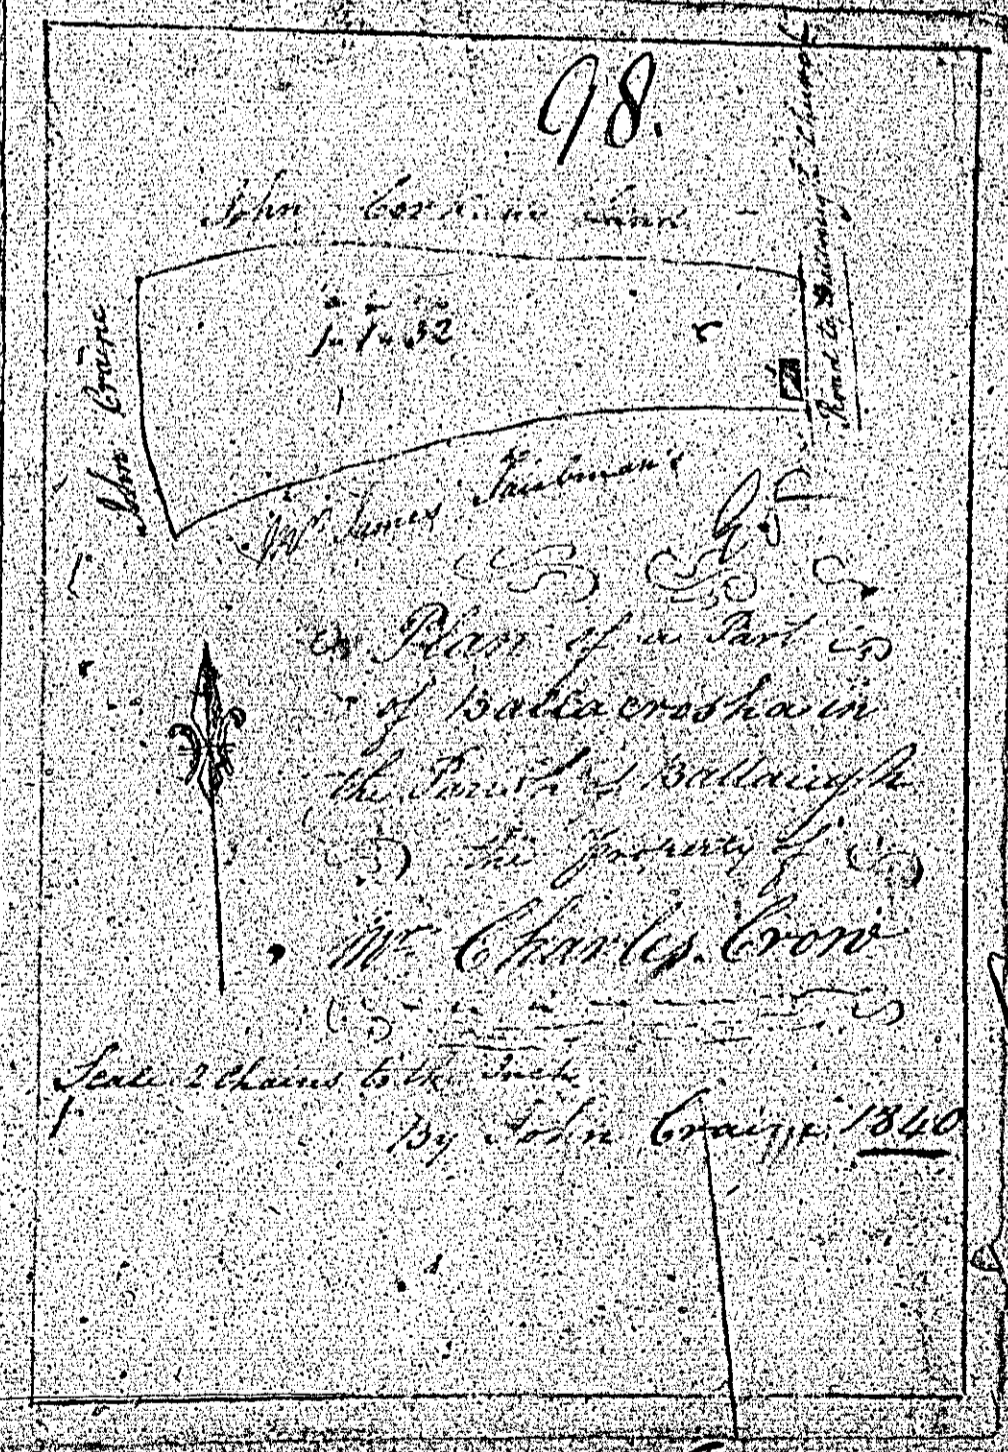 98.
John
Road to Ballaugh Church
1 " 1 " 32
John Craine
Mr James Taubman's
Plan of a Part
of Ballacrosha in
the Parish of Ballaugh
the property of
Mr Charles Crow
Scale 2 Chains to the Inch
By John Craige 1840